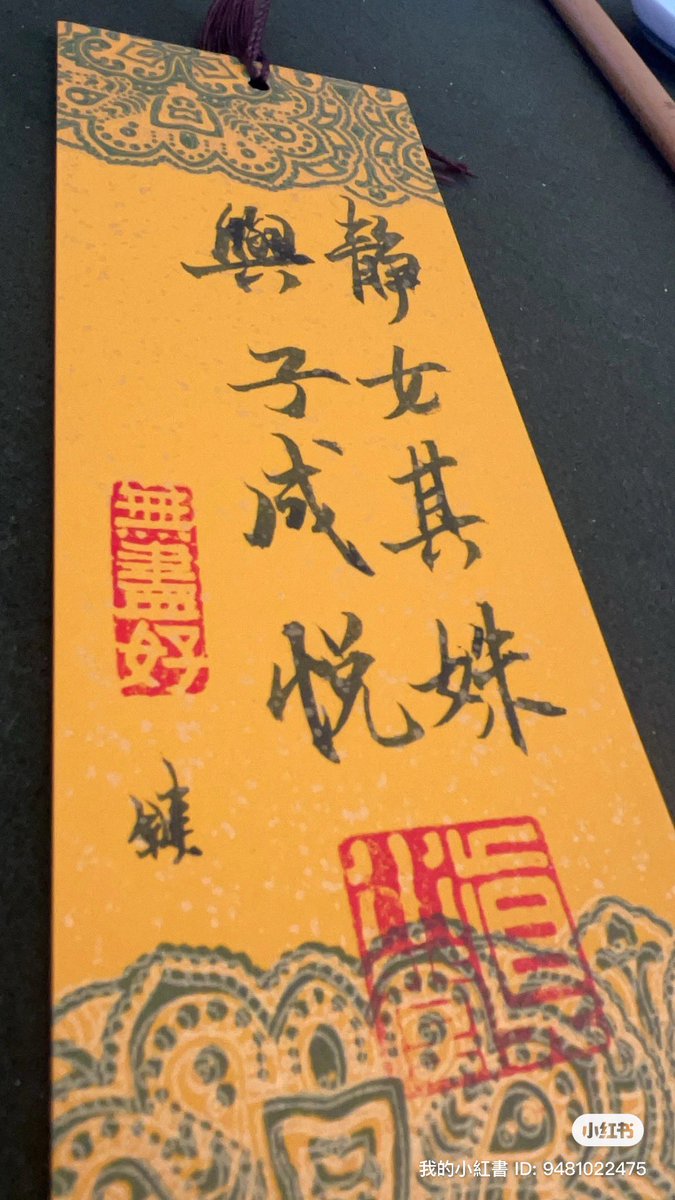 靜女其姝
與子成悅
無盡好
小红书
我的小紅書 ID: 9481022475